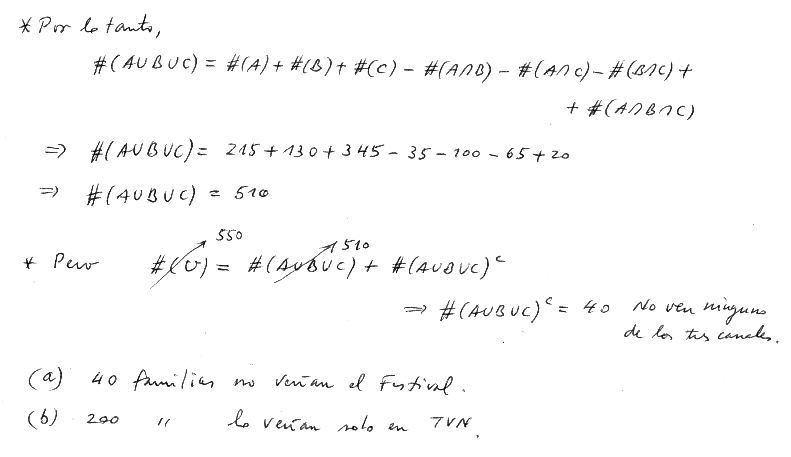 * Por lo tanto,
#(A∪B∪C) = #(A) + #(B) + #(C) - #(A∩B) - #(A∩C) - #(B∩C) +
+ #(A∩B∩C)
⇒ #(A∪B∪C) = 215 + 130 + 345 - 35 - 100 - 65 + 20
⇒ #(A∪B∪C) = 510
550 510
* Pero #(U) = #(A∪B∪C) + #(A∪B∪C)ᶜ
⇒ #(A∪B∪C)ᶜ = 40 No ven ninguno
de los tres canales.
(a) 40 familias no verían el Festival.
(b) 200 " lo verían solo en TVN.